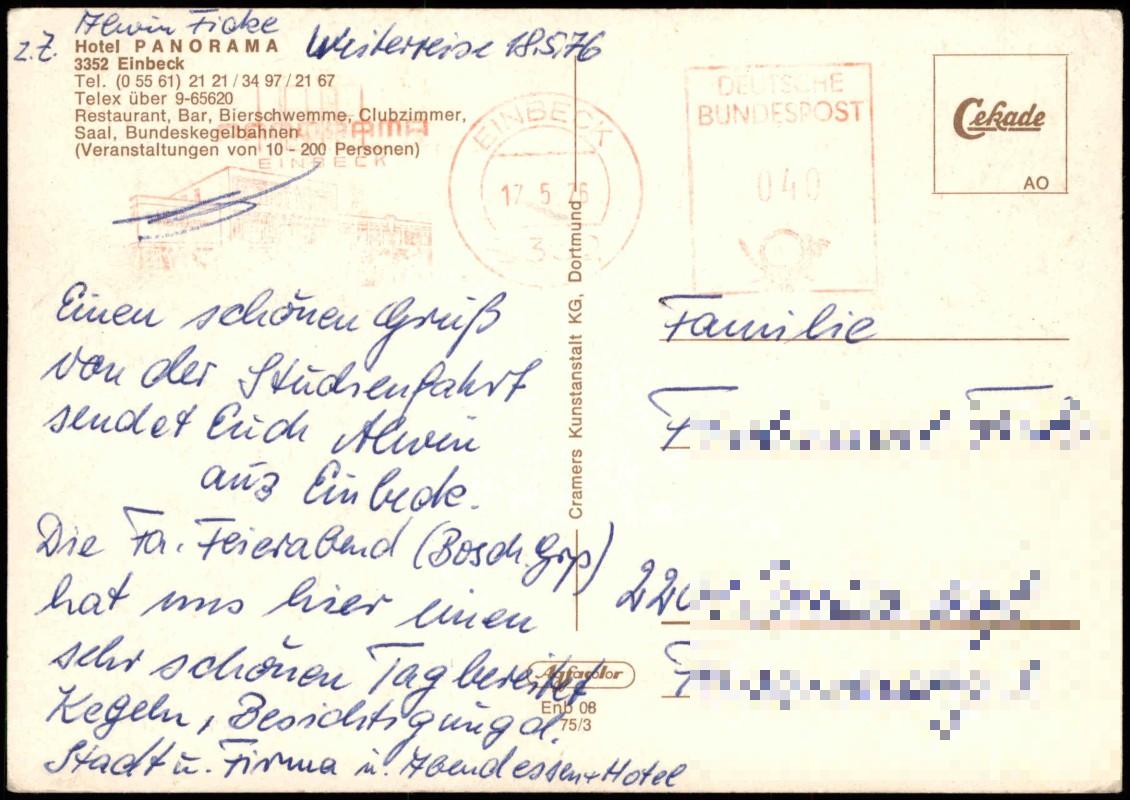 Alwin Ficke
z.Z. Hotel PANORAMA Weiterreise 18.5.76
3352 Einbeck
Tel. (0 55 61) 21 21 / 34 97 / 21 67
Telex über 9-65620
Restaurant, Bar, Bierschwemme, Clubzimmer,
Saal, Bundeskegelbahnen
(Veranstaltungen von 10 - 200 Personen)
PANORAMA
EINBECK
EINBECK
17.5.76
DEUTSCHE
BUNDESPOST
040
Cekade
AO
Einen schönen Gruß
von der Studienfahrt
sendet Euch Alwin
aus Einbeck.
Die Fa. Feierabend (Bosch Grp)
hat uns hier einen
sehr schönen Tag bereitet
Kegeln, Besichtigung d.
Stadt u. Firma u. Abendessen + Hotel
Cramers Kunstanstalt KG, Dortmund
Agfacolor
Enb 08
75/3
Familie
220